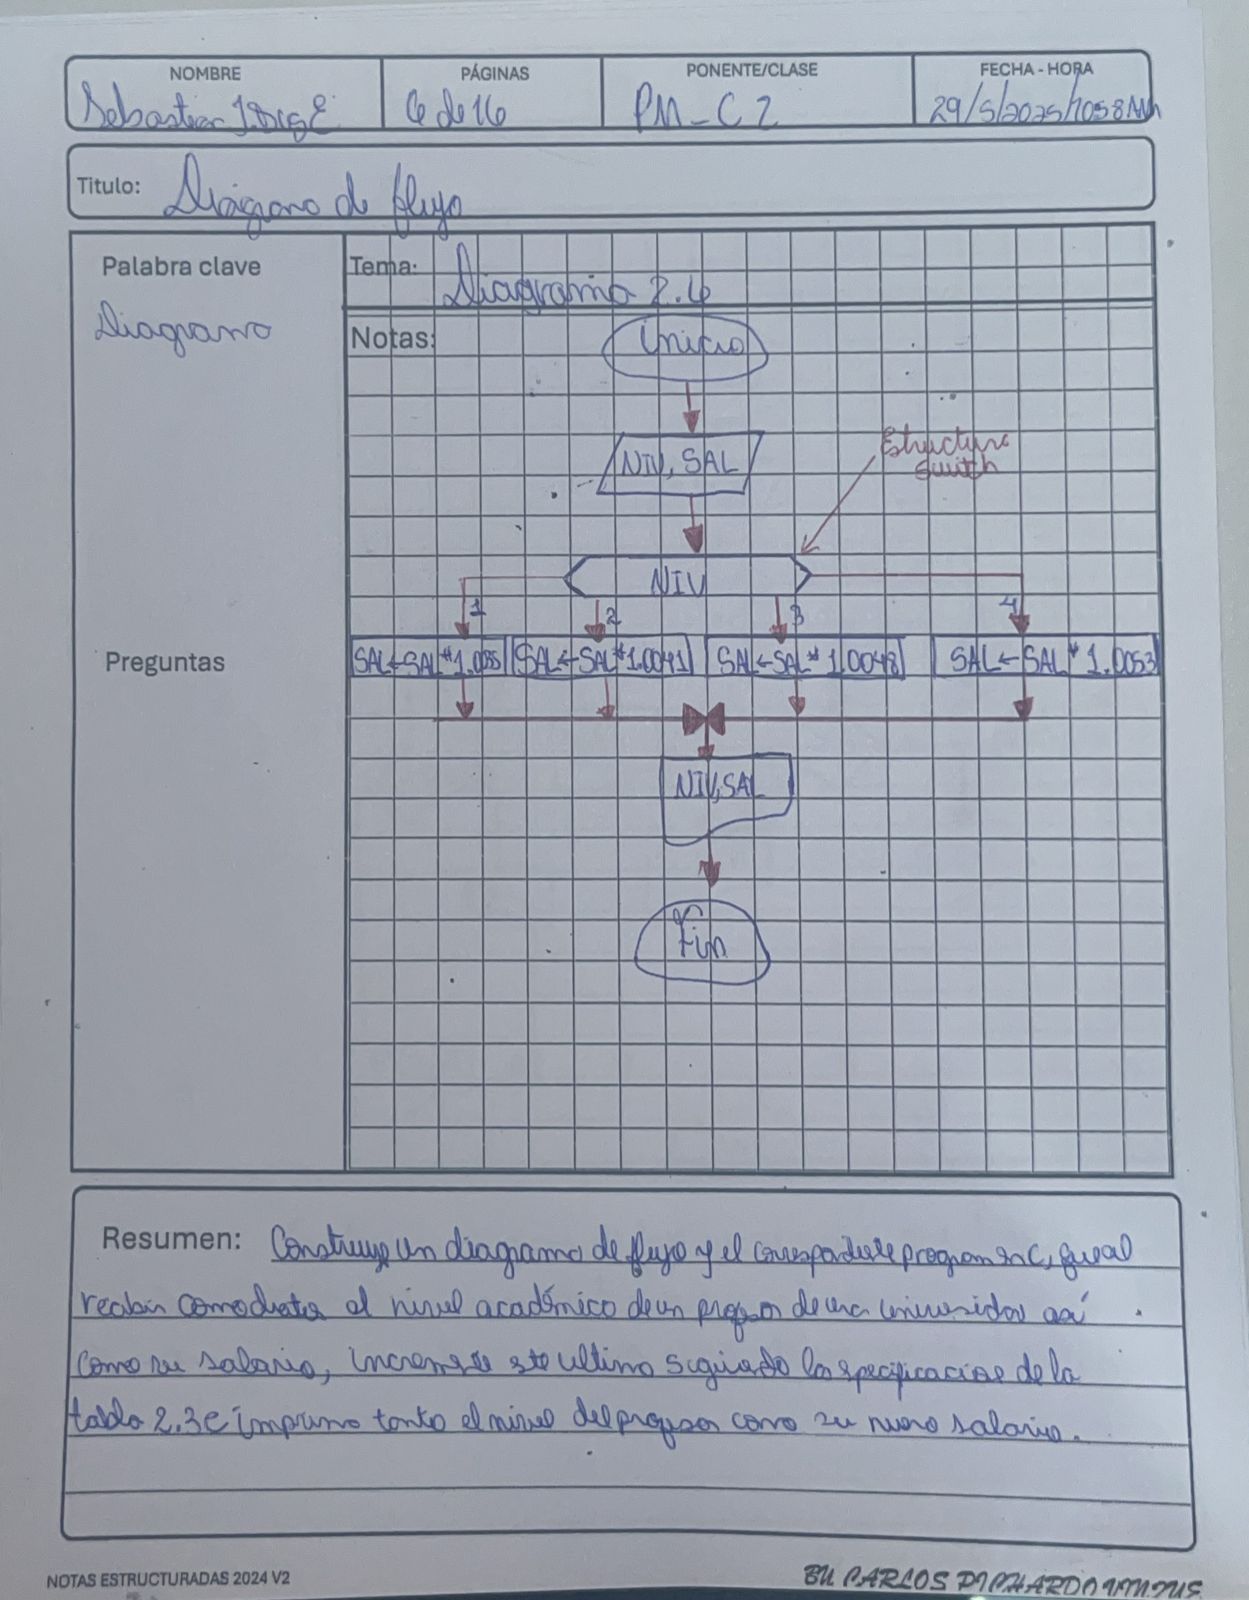 NOMBRE PÁGINAS PONENTE/CLASE FECHA - HORA
Sebastian 6 de 16 PM_C2 29/5/2025/1058AM
Titulo: Diágramo de flujo
Palabra clave
Diagramo
Tema: Diagramo 2.6
Notas:
Inicio
NIV, SAL
Estructura
switch
NIV
1 2 3 4
Preguntas
SAL←SAL*1.0035 SAL←SAL*1.0041 SAL←SAL*1.0048 SAL←SAL*1.0053
NIV,SAL
Fin
Resumen: Construye un diagrama de flujo y el correspondiente program en C, que al
recibir como datos el nivel académico de un profesor de una universidad así
como su salario, incremente este ultimo siguiendo las especificaciones de la
tabla 2.3 e imprima tanto el nivel del profesor como su nuevo salario.
NOTAS ESTRUCTURADAS 2024 V2
BY CARLOS PICHARDO